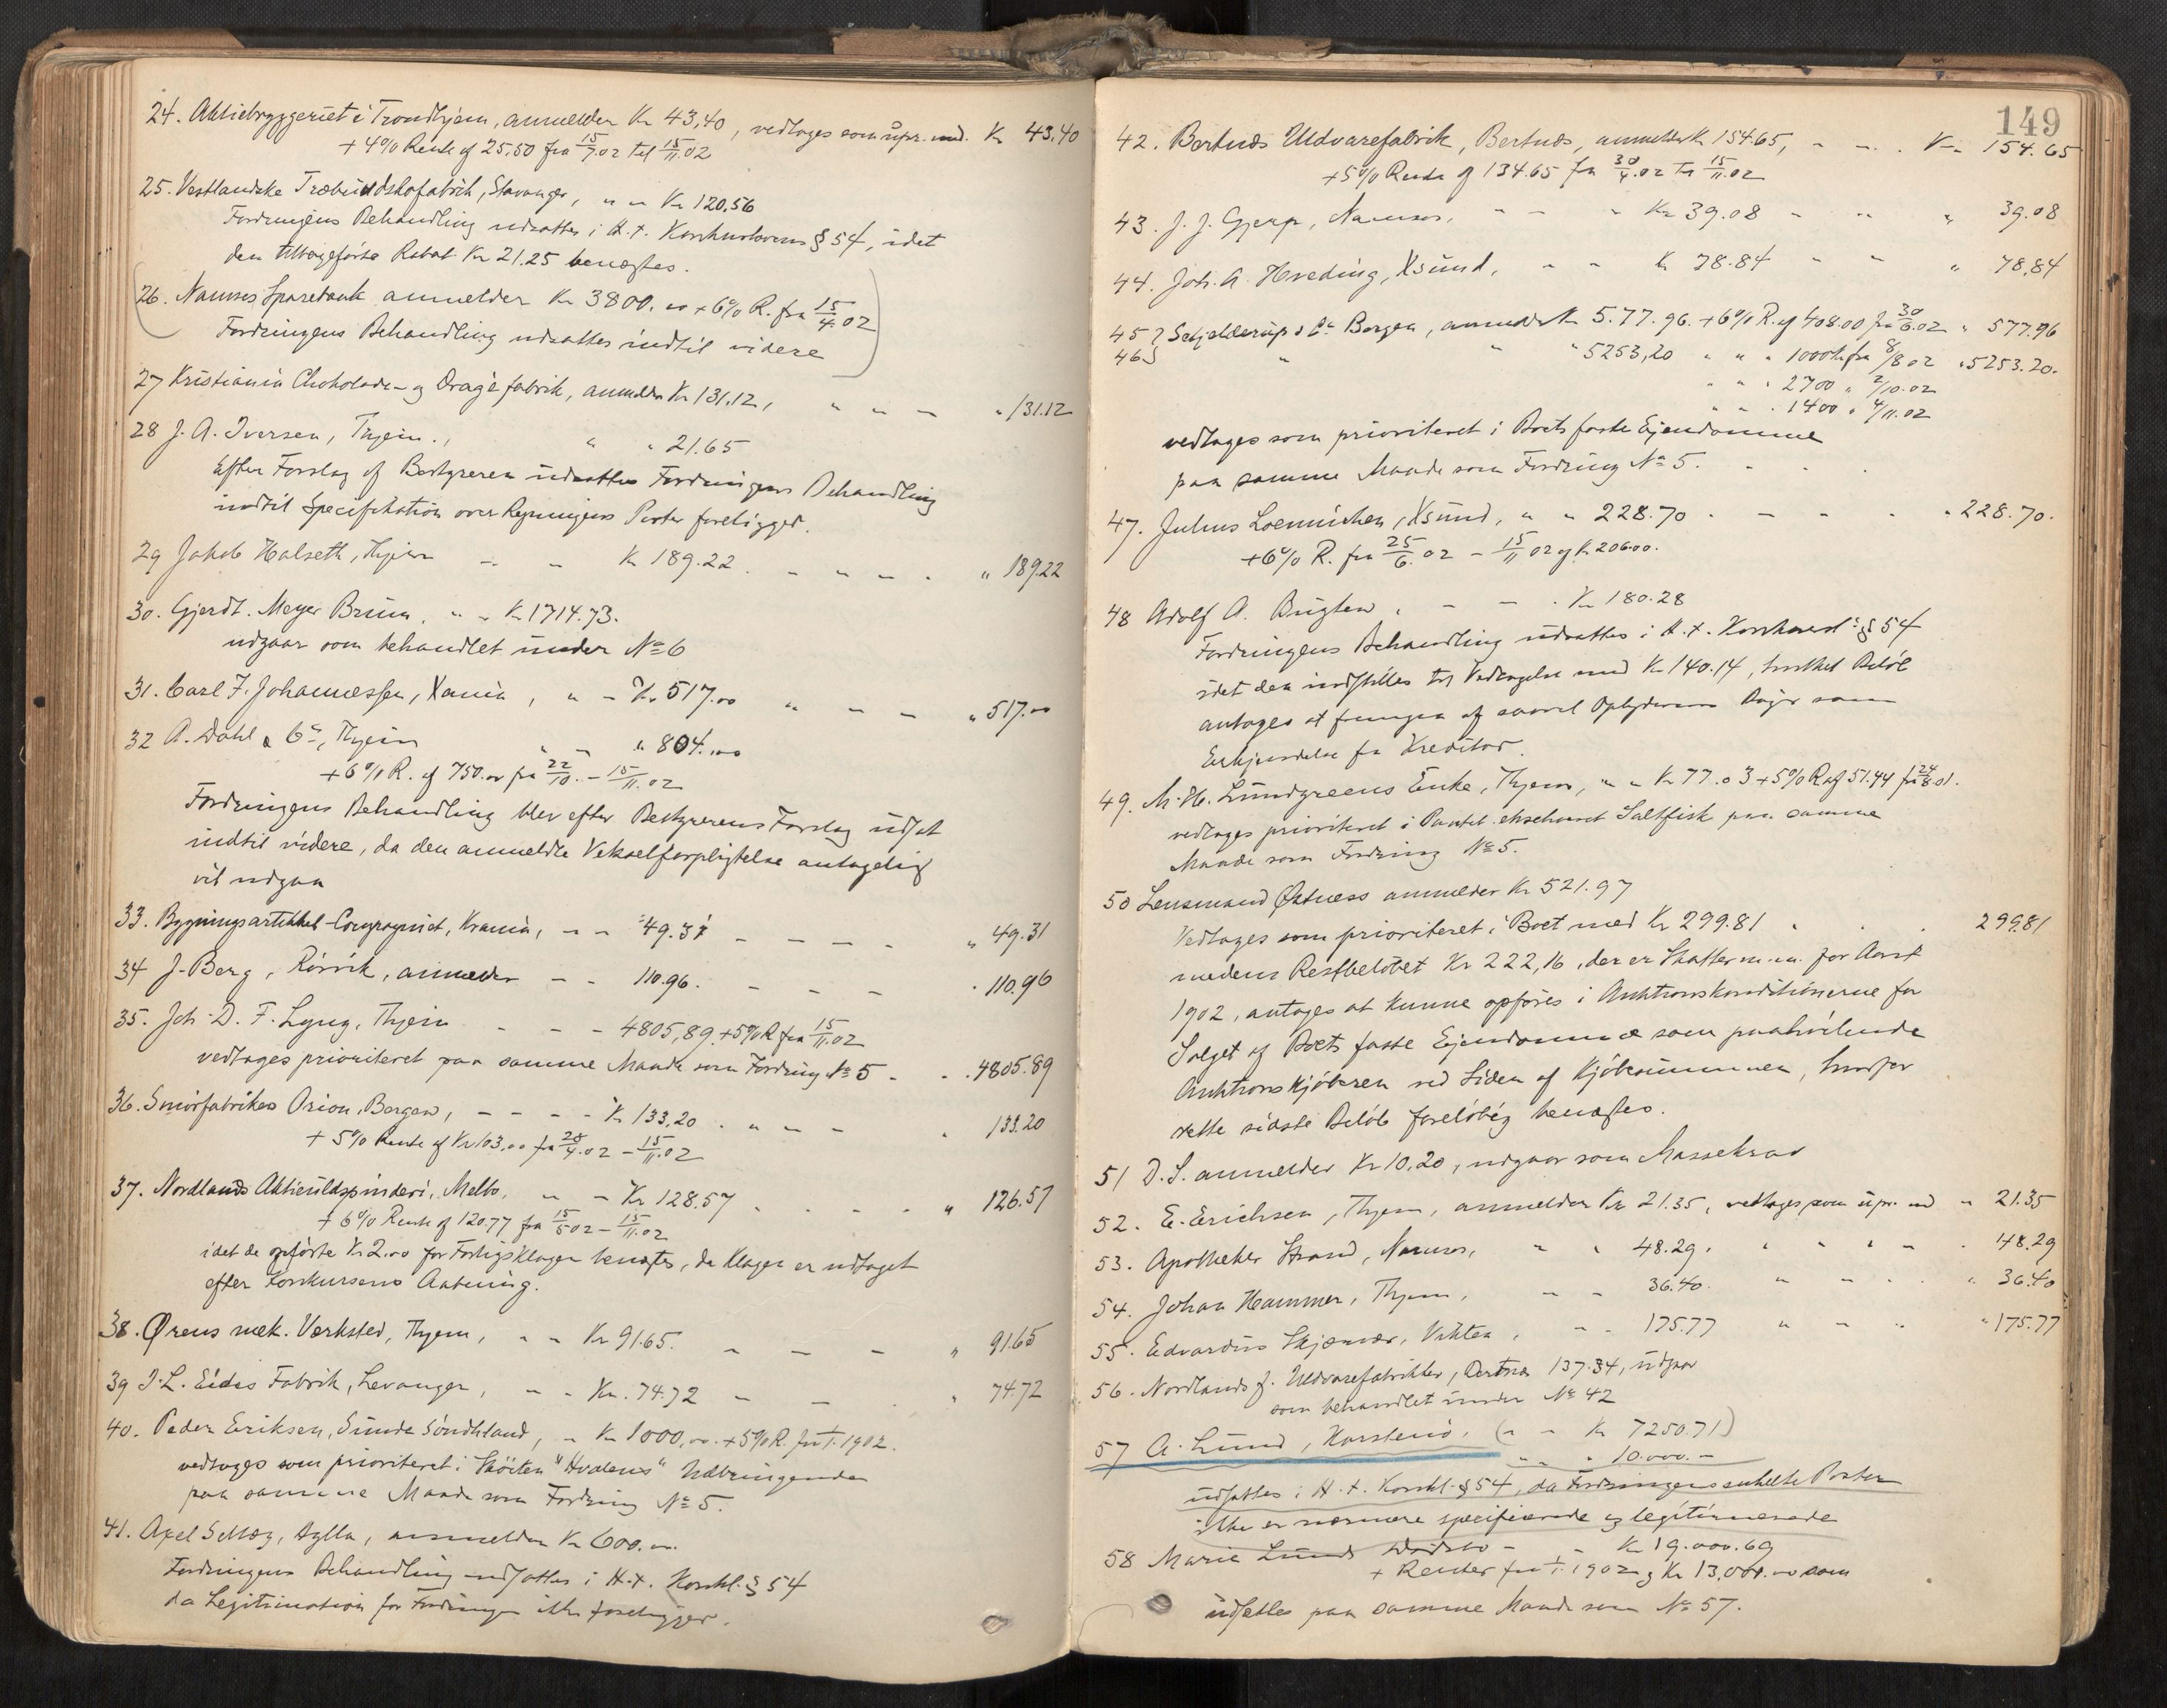 24. Aktiebryggeriet i Trondhjem, anmelder Kr 43,40, vedtages som upr. med. Kr 43.40
+ 4% Rente af 25,50 fra 15/7.02 til 15/11.02
25. Vestlandske Træbundskofabrik, Stavanger, " " Kr 120,56
Fordringens Behandling udsættes i H.t. Konkurslovens § 54, idet
den tilbageførte Rabat Kr 21.25 benægtes.
26. Namsos Sparebank anmelder Kr 3800.00 + 6% R. fra 15/4.02
Fordringens Behandling udsættes indtil videre
27 Kristiania Chokolade- og Dragéfabrik, anmelder Kr 131.12, " " – " 131.12
28 J. A. Iversen, Thjem., " " 21.65
Efter Forslag af Bestyreren udsættes Fordringens Behandling
indtil Specifikation over Regningens Poster foreligger.
29 Jakob Halseth, Thjem " " Kr 189.22 . – " – . " 189.22
30. Gjerdt. Meyer Bruun, " " Kr 1714.73.
udgaar som behandlet under No 6
31. Carl F. Johannessen, Xania, " – Kr 517.00 " – – " 517.00
32 A. Dahl & Co, Thjem " – " 804.00
+ 6% R. af 750.00 fra 22/10. – 15/11.02
Fordringens Behandling blev efter Bestyrerens Forslag udsat
indtil videre, da den anmeldte Vekselforpligtelse antagelig
vil udgaa
33. Bygningsartikkel-Compagniet, Krania, – – " 49.31 – – – . " 49.31
34 J. Berg, Rörvik, anmelder – – 110.96. – – – . 110.96
35. Joh. D. F. Lyng, Thjem – – – 4805,89 + 5% R fra 15/11.02
vedtages prioriteret paa samme Maade som Fordring No 5 – . . 4805.89
36. Smörfabriken Orion, Bergen, – – – – Kr 133,20 . " – – . 133.20
+ 5% Rente af Kr 103,00 fra 28/4.02 – 15/11.02
37. Nordlands Aktieuldspinderi, Melbo, " – Kr 128.57 . . . . " 126.57
+ 6% Rente af 120.77 fra 15/5 02 – 15/11.02
idet de opførte Kr 2.00 for Forligsklagen benægtes, da Klagen er udtaget
efter Konkursens Aabning.
38. Ørens mek. Værksted, Thjem, – – Kr 91.65. – – – " 91.65
39 I. L. Eides Fabrik, Levanger, – – Kr. 74.72 – – . " 74.72
40. Peder Eriksen, Sunde Söndhland, – Kr 1000,00. + 5% R. fra 1/1. 1902.
vedtages som prioriteret i Skötten "Hvalens" Udbringende
paa samme Maade som Fordring No 5.
41. Axel Sellæg, Aglla, anmelder Kr 600.00.
Fordringens Behandling udsættes i H.t. Konkl. § 54
da Legitimation for Fordringen ikke foreligger.
149
42. Bertnæs Uldvarefabrik, Bertnæs, anmelder Kr 154.65, – – . . Kr 154.65
+ 5% Rente af 134.65 fra 30/4.02 til 15/11.02
43. J. J. Gjerp, Namsos, – – " Kr 39.08 – " " 39.08
44. Joh. A. Hveding, Xsund, – – Kr 78.84 – – " 78,84
45 } Schjelderup & Co Bergen, anmelder Kr 5.77.96. + 6% R. af 408.00 fra 30/6.02 " 577.96
46 } " " " 5253,20 " " " 1000 Kr fra 8/8 02 " 5253.20.
" " " 2700 " 2/10.02
" " . 1400 " 4/11.02
vedtages som prioriteret i Boets faste Ejendomme
paa samme Maade som Fordring No 5.
47. Julius Loennichen, Xsund, " " 228.70 . – – . . " 228.70.
+ 6% R. fra 25/6.02 – 15/11 02 af Kr 206.00.
48 Adolf A. Bugten, – – . Kr 180.28
Fordringens Behandling udsættes i H.t. Konkursl. § 54
idet den indstilles til Vedtagelse med Kr 140.14, hvilket Beløb
antages at fremgaa af saavel Opbyderens Bøger som
Erkjendelse fra Kreditor.
49. M. H. Lundgreens Enke, Thjem, " " Kr 77.03 + 5% R af 51.44 fra 24/8.01.
vedtages prioriteret i Pantet ekschweret Saltfisk paa samme
Maade som Fordring No 5.
50 Lensmand Østnæss anmelder Kr 521.97
Vedtages som prioriteret i Boet med Kr 299.81 . . . 299.81
medens Restbeløbet Kr 222,16, der er Skatter m.m. for Aaret
1902, antages at kunne opføres i Auktionskonditionerne for
Salget af Boets faste Ejendomme som paahvilende
Auktionskjöberen ved Siden af Kjöbesummen, hvorfor
dette sidste Beløb foreløbig benægtes.
51 D. S. anmelder Kr 10,20, udgaar som Massekrav
52. E. Erichsen, Thjem, anmelder Kr 21.35, vedtages som upr. med " 21.35
53. Apotheker Strand, Namsos, " " 48.29. " " " – . 48.29
54. Johan Hammer, Thjem, – – 36.40. " – . . " 36.40
55. Edvardus Skjævær, Vikten, – – 175.77 " – " " 175.77
56. Nordlands f. Uldvarefabrikker, Bertnæs 137.34, udgaar
som behandlet under No 42
57 A. Lund, Karstenö, (– – Kr 7250.71)
" " " 10.000.–
udsættes i H.t. Konkl. § 54, da Fordringens enkelte Poster
ikke er nærmere specificerede og legitimerede
58 Marie Lunds Dödsbo – – Kr 19.000.69
+ Renter fra 1/1. 1902 af Kr 13,000.00 som
udsættes paa samme Maade som No 57.